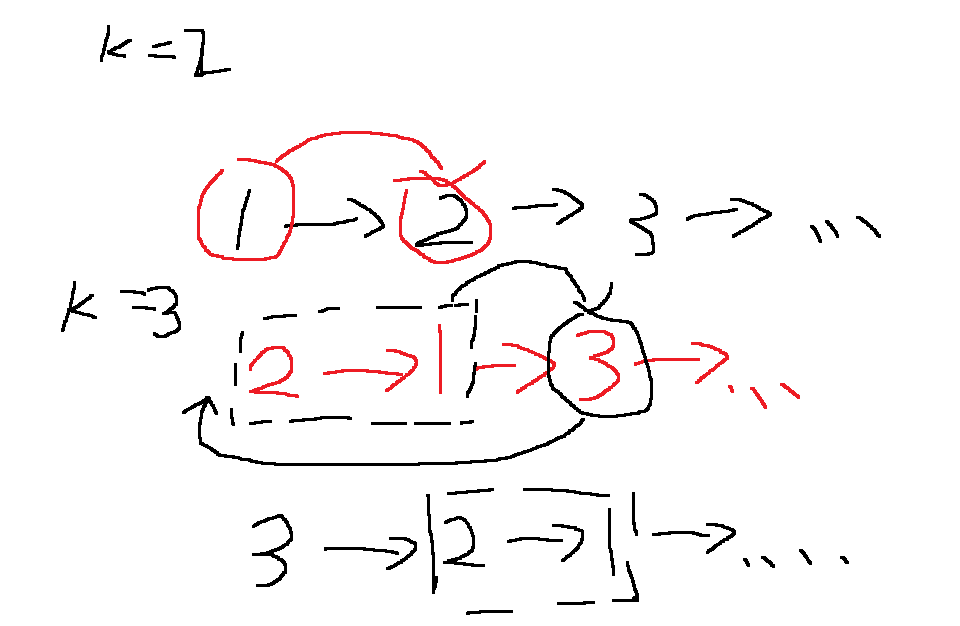 k = 2
1 → 2 → 3 → ...
k = 3
2 → 1 → 3 → ...
3 → 2 → 1 → ....